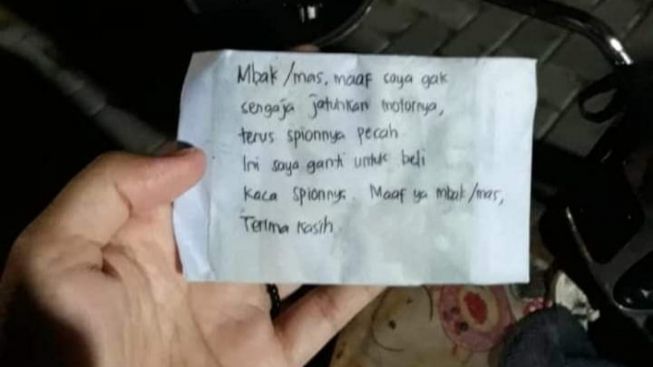 Mbak/mas, maaf saya gak
sengaja jatuhkan motornya,
terus spionnya pecah.
Ini saya ganti untuk beli
kaca spionnya. Maaf ya mbak/mas,
Terima kasih.